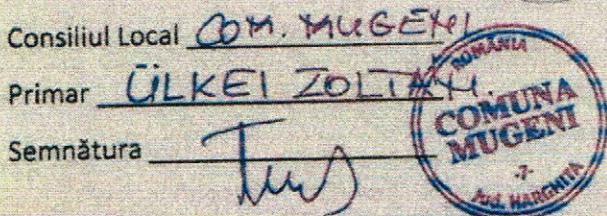 Consiliul Local COM. MUGENI
Primar ÜLKEI ZOLTAN.
Semnătura
ROMÂNIA
COMUNA
MUGENI
-7-
Jud. HARGHITA